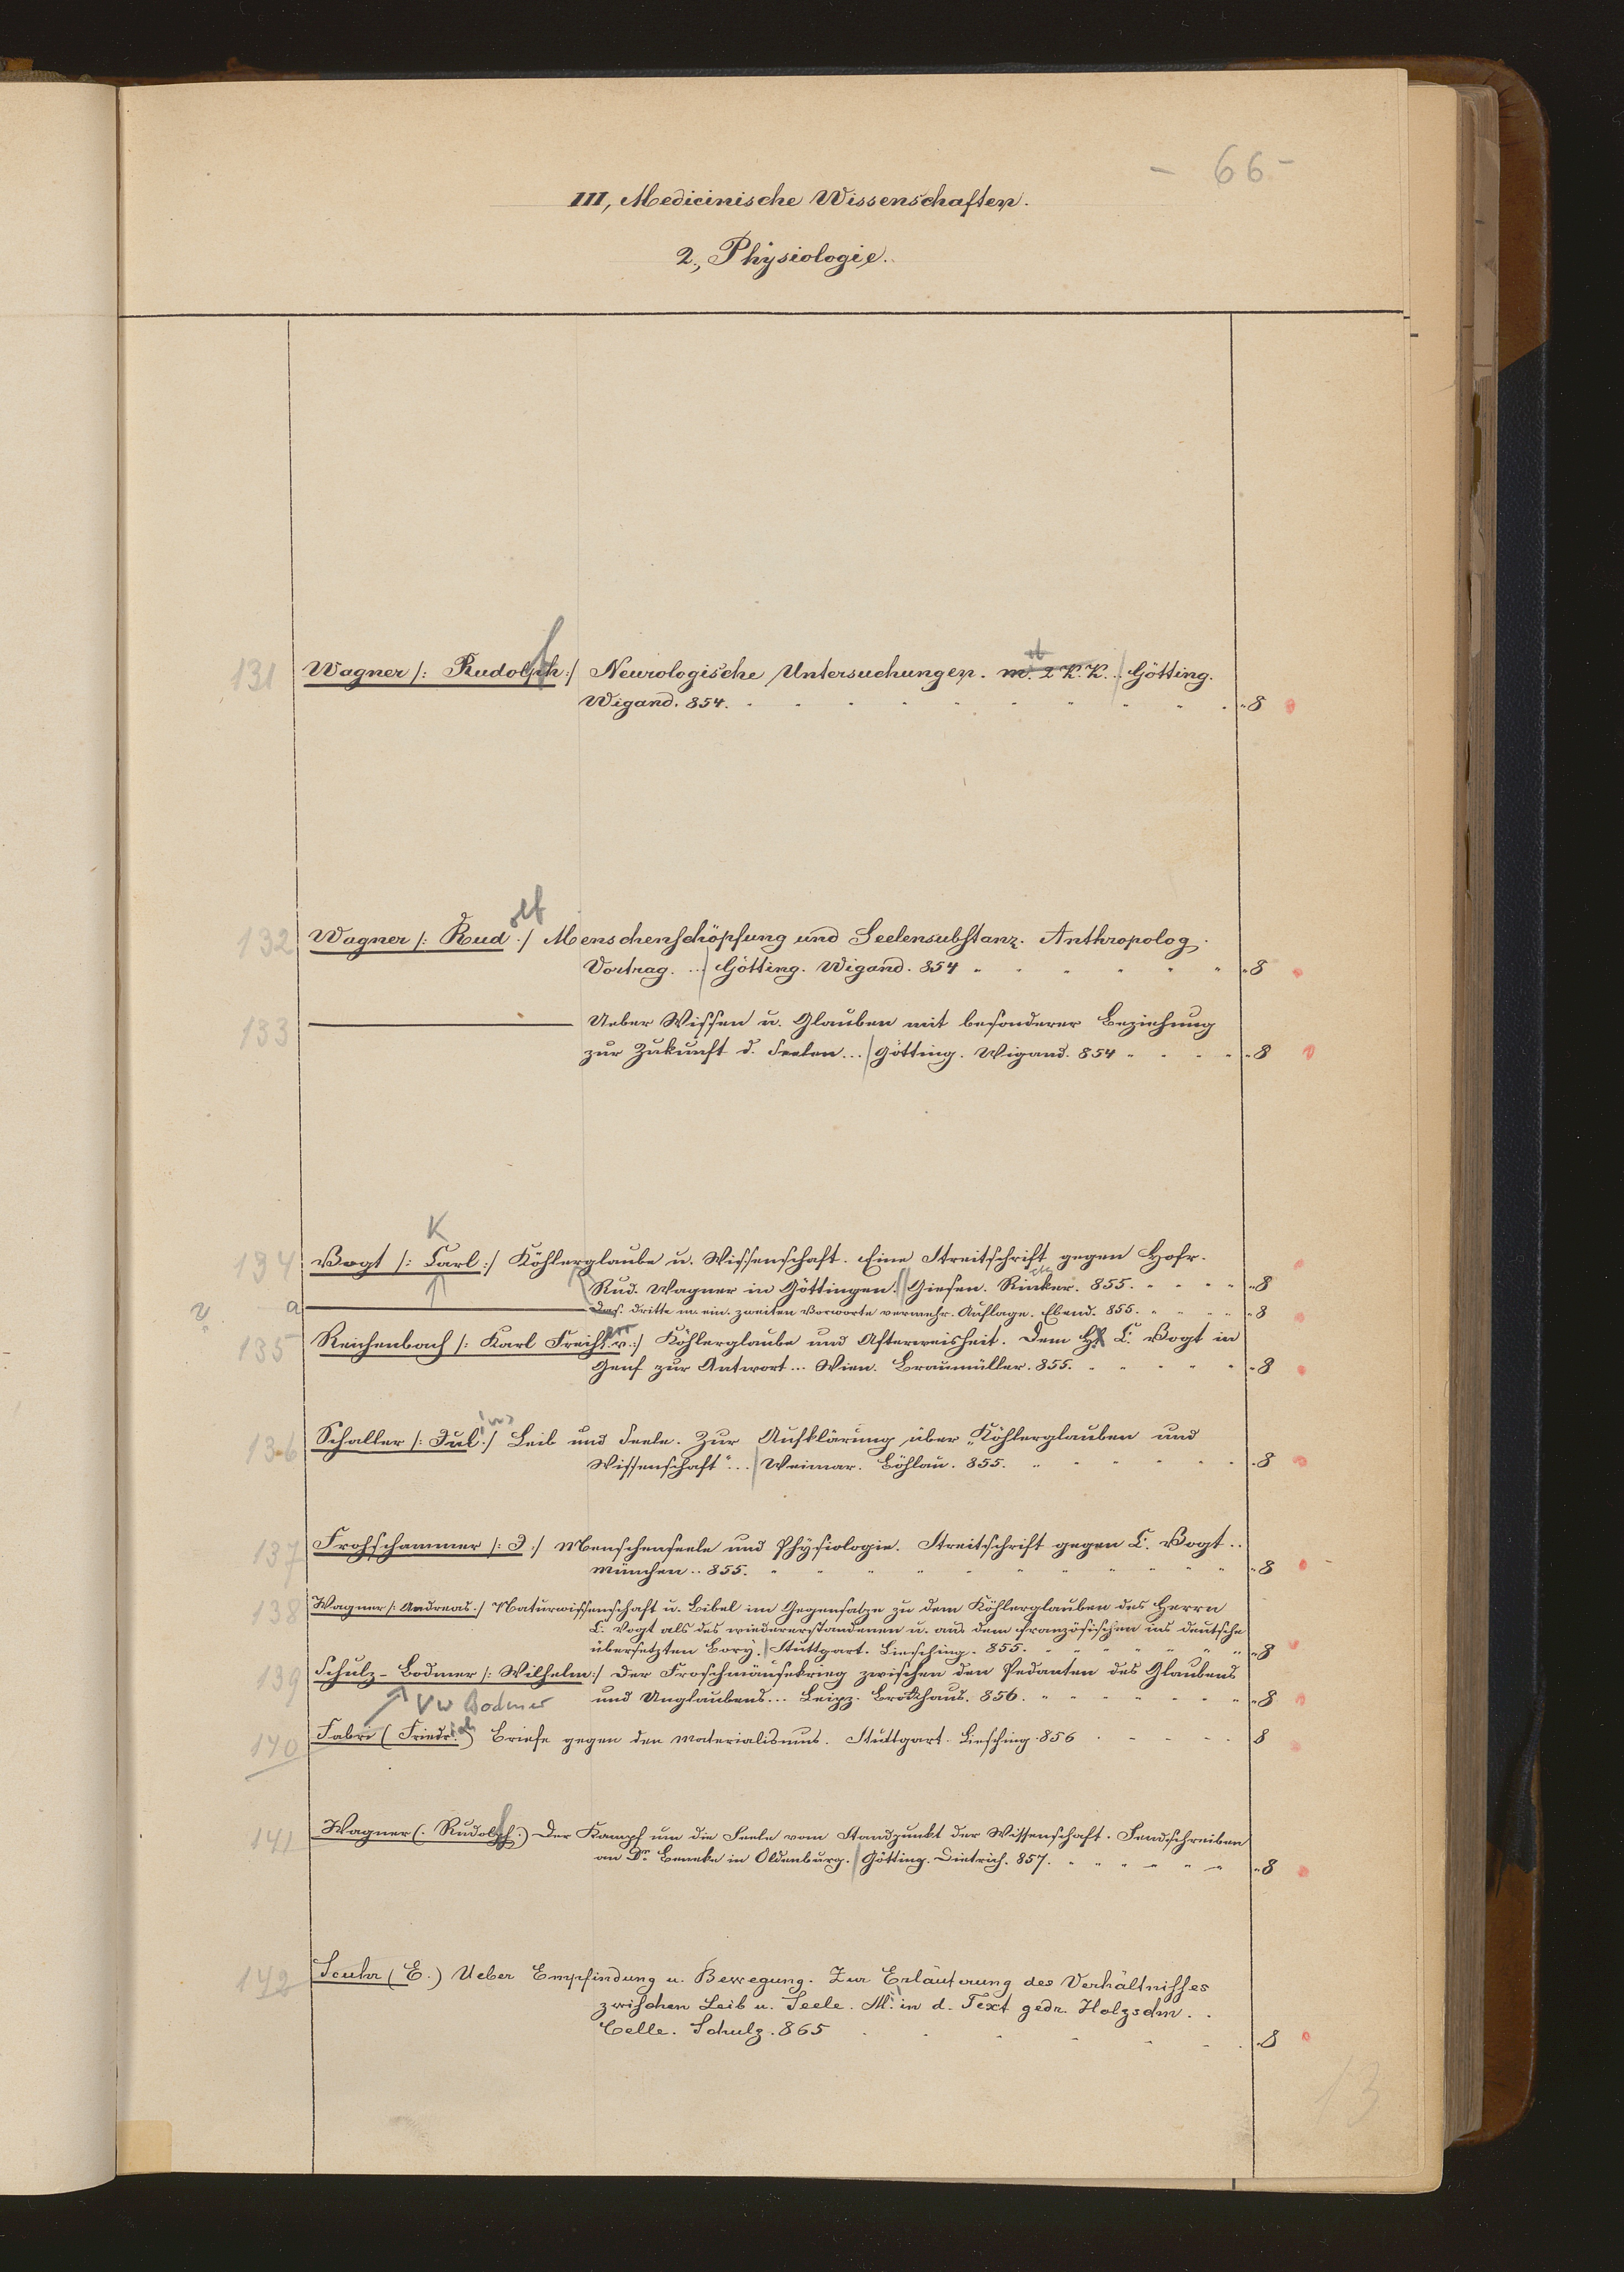 - 66 -
III, Medicinische Wissenschaften.
2., Physiologie.
131 Wagner /: Rudolph :/ Neurologische Untersuchungen. m. 2 K. K. .. Götting.
Wigand. 854. 8
132 Wagner /: Rud :/ Menschenschöpfung und Seelensubstanz. Anthropolog.
olf
Vortrag. ... Götting. Wigand. 854 8
133 Ueber Wissen u. Glauben mit besonderer Beziehung
zur Zukunft d. Seelen... Götting. Wigand. 854 8
K
134 Vogt /: Carl :/ Köhlerglaube u. Wissenschaft. Eine Streitschrift gegen Hofr.
Rud. Wagner in Göttingen. Giesen. Rinker. 855. 8
a Dass. dritte m. ein. zweiten Vorworte vermehr. Auflage. Ebend. 855. 8
135 Reichenbach /: Karl Freih. v. :/ Köhlerglaube und Afterweisheit. Dem H. C. Vogt in
Genf zur Antwort... Wien. Braumüller. 855. 8
136 Schaller /: Jul :/ Leib und Seele. Zur Aufklärung über „Köhlerglauben und
ius
Wissenschaft"... Weimar. Böhlau. 855. 8
137 Frohschammer /: J :/ Menschenseele und Physiologie. Streitschrift gegen C. Vogt ..
München .. 855. 8
138 Wagner /: Andreas :/ Naturwissenschaft u. Bibel im Gegensatze zu dem Köhlerglauben des Herrn
C. Vogt als des wiedererstandenen u. aus dem französischen ins deutsche
übersetzten Bory. Stuttgart. Liesching. 855. 8
139 Schulz-Bodmer /: Wilhelm :/ Der Froschmäusekrieg zwischen den Pedanten des Glaubens
und Unglaubens... Leipz. Brockhaus. 856. 8
VW Bodmer
140 Fabri (Friedrich) Briefe gegen den Materialismus. Stuttgart. Liesching. 856 8
141 Wagner (. Rudolph .) Der Kampf um die Seele vom Standpunkt der Wissenschaft. Sendschreiben
an Dr Beneke in Oldenburg. Götting. Dietrich. 857. 8
142 Scuhr (E.) Ueber Empfindung u. Bewegung. Zur Erläuterung des Verhältnisses
zwischen Leib u. Seele. M. in d. Text gedr. Holzschn. ..
Celle. Schulz. 865 8
13